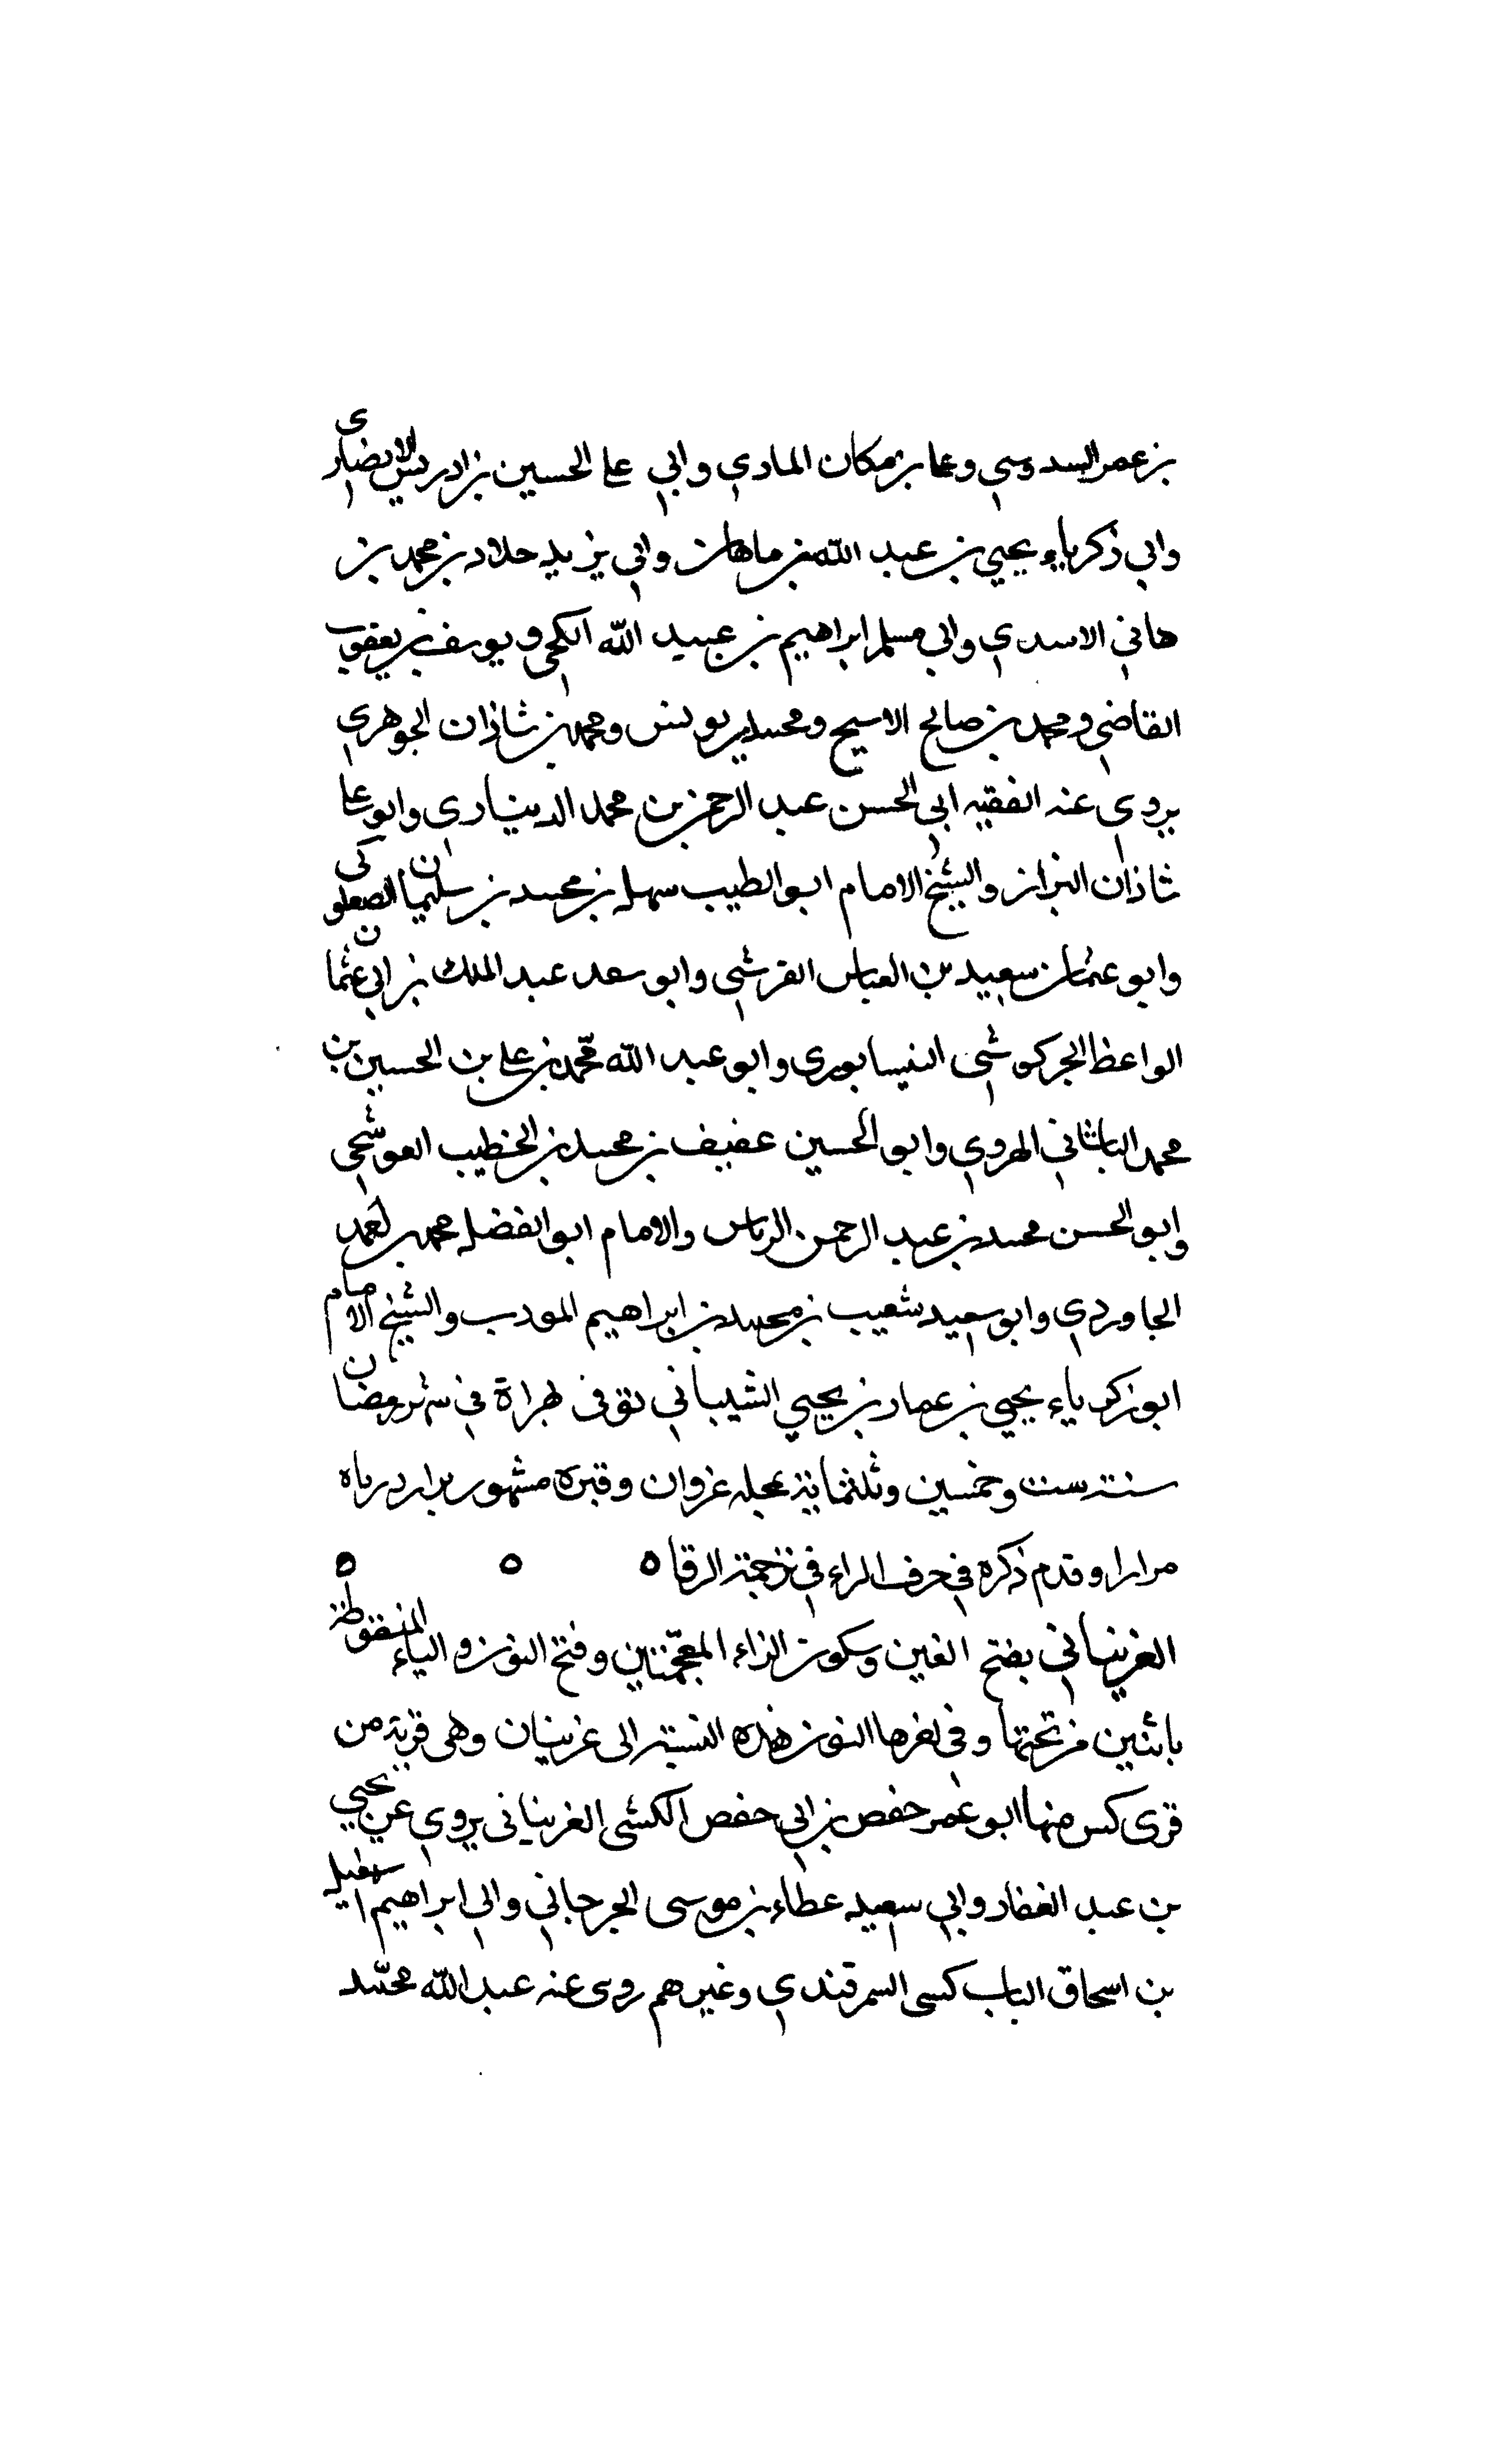 بن عمر السدوسي وعلي بن مكان المادي وابي علي الحسين بن ادريس الانصاري
وابي زكرياء يحيي بن عبد الله بن ماهان وابي يزيد خلاد بن محمد بن
هاني الاسدي وابي مسلم ابراهيم بن عبيد الله الكجي ويوسف بن يعقوب
القاضي ومحمد بن صالح الاسيح ومحمد بن يونس ومحمد بن شاذان الجوهري
يروي عنه الفقيه ابي الحسن عبد الرحمن بن محمد الديناري وابو علي
شاذان البزاز والشيخ الامام ابو الطيب سهل بن محمد بن سليمان الصعلوكي
وابو عثمان سعيد بن العباس القرشي وابو سعد عبد الملك بن ابي عثمان
الواعظ الجركوشي النيسابوري وابو عبد الله محمد بن علي بن الحسين بن
محمد الباشاني الهروي وابو الحسين عفيف بن محمد بن الخطيب العوشجي
وابو الحسن محمد بن عبد الرحمن الرباس والامام ابو الفضل محمد بن احمد
الجاوردي وابو سعيد شعيب بن محمد بن ابراهيم المودب والشيخ الامام
ابو زكرياء يحيي بن عمار بن يحيي الشيباني توفي بهراة في شهر رمضان
سنة ست وخمسين وثلثماية بمحله غزوان وقبره مشهور يزار زرناه
مرارا وقدم ذكره في حرف الراء في ترجمة الرفا ٥ ٥ ٥
الغزنياني بفتح الغين وسكون الزاء المعجمتين وفتح النون والياء المنقوطة
باثنين من تحتها وفي اخرها النون هذه النسبة الى غزنيان وهي قرية من
قرى كس منها ابو عمر حفص بن ابي حفص الكشي الغزنياني يروي عن يحيي
بن عبد الغفار وابي سعيد عطاء بن موسى الجرجاني وابي ابراهيم اسمعيل
بن اسحاق الباب كسى السمرقندي وغيرهم روى عنه عبد الله محمد